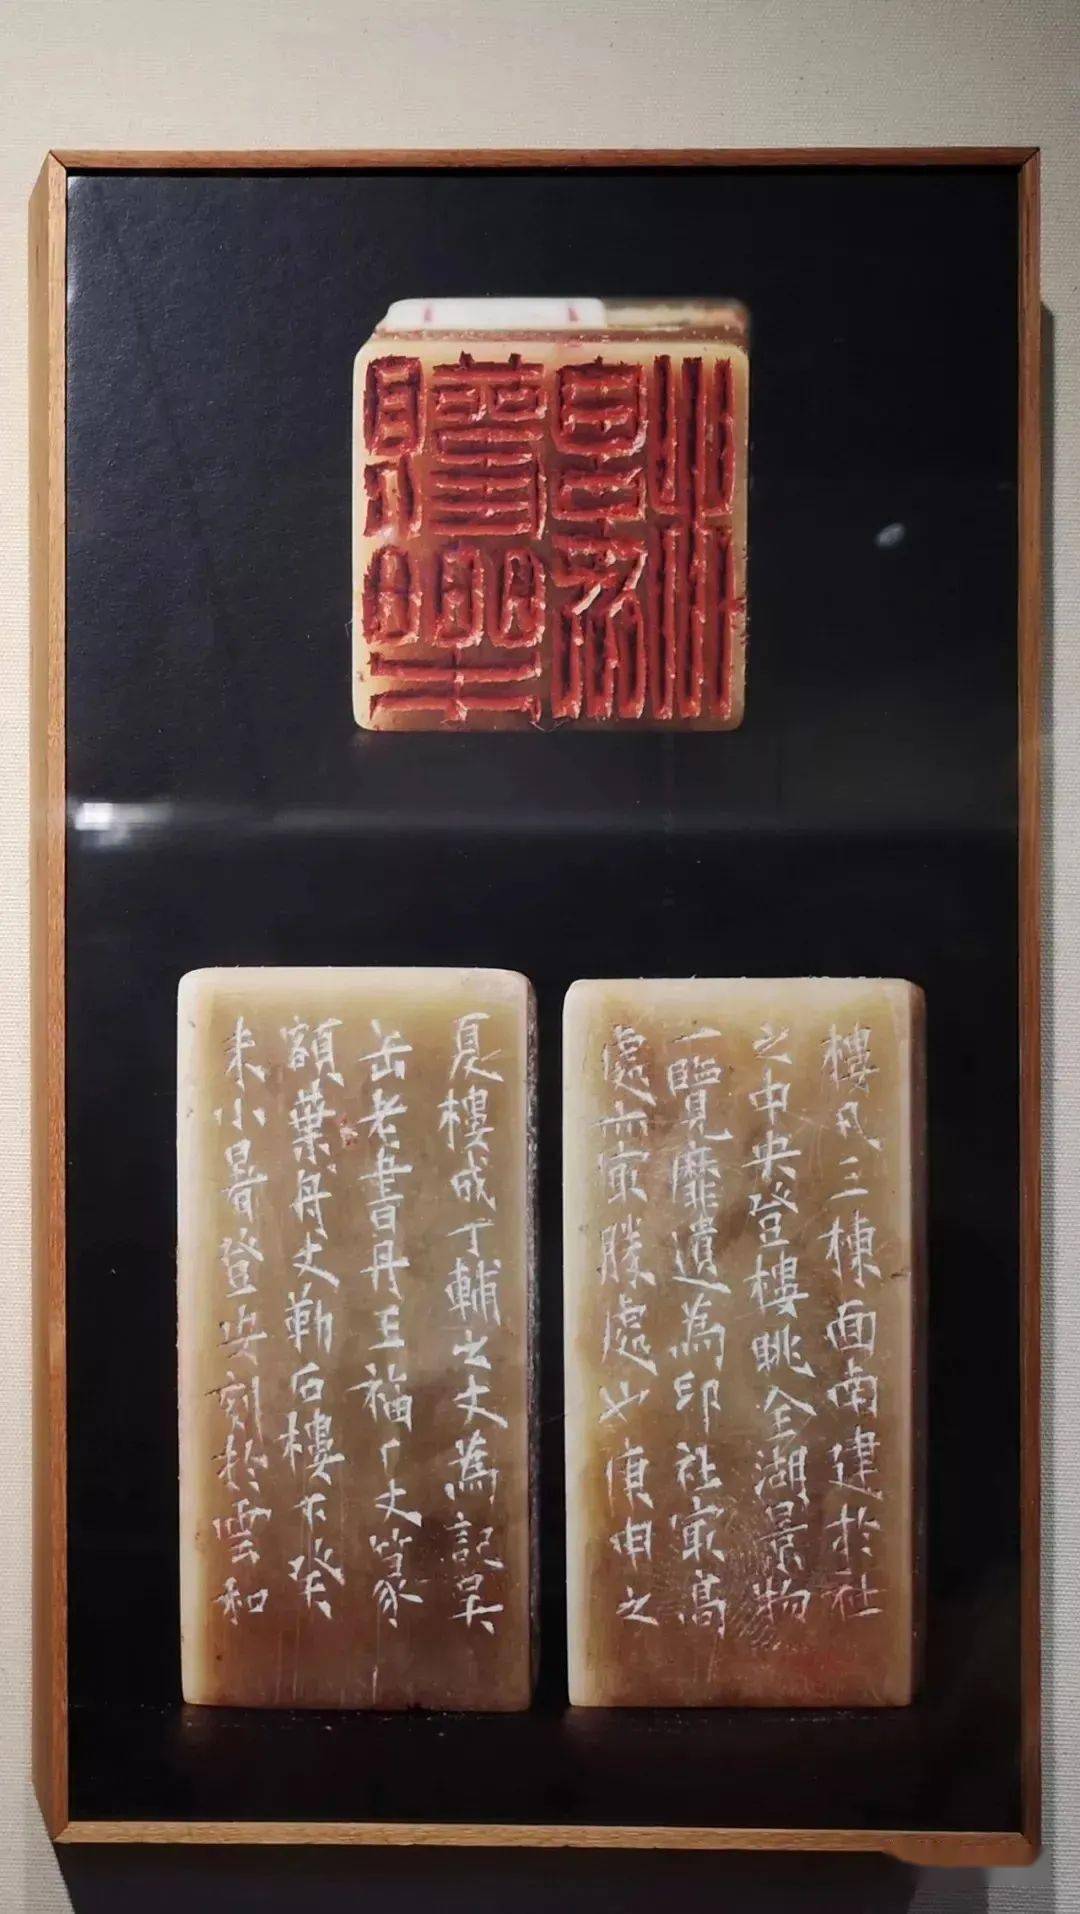 樓凡三棟面南建於社
之中央登樓眺全湖景物
一覽靡遺為印社㝡高
處亦㝡勝處也庚申之
夏樓成丁輔之丈為記吳
缶老書丹王福厂丈篆
額葉舟丈勒石樓下癸
未小暑登安刻於雲和